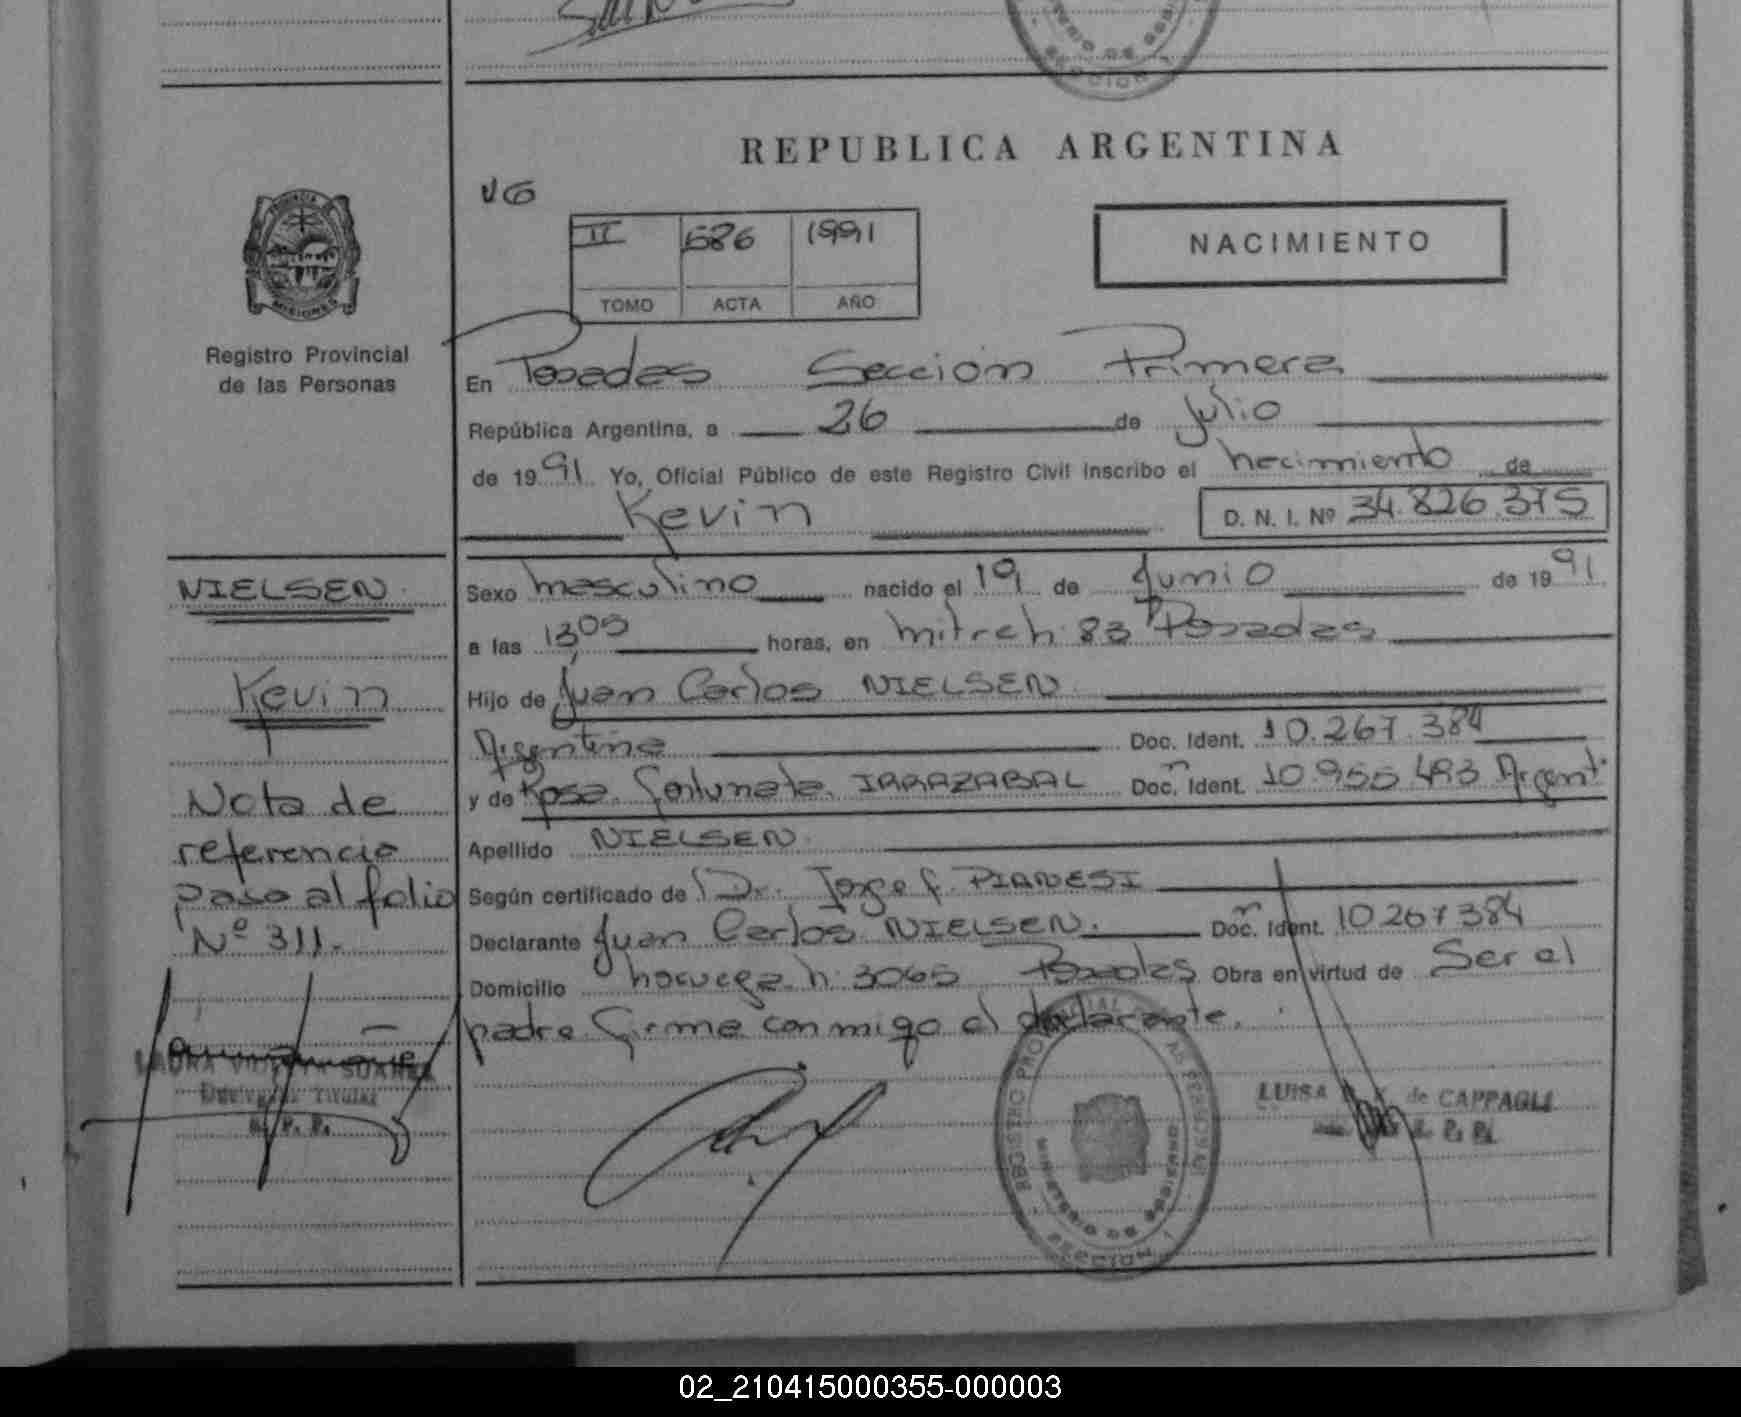 REPUBLICA ARGENTINA
VG
II 686 1991
TOMO ACTA AÑO
NACIMIENTO
PROVINCIA
MISIONES
Registro Provincial
de las Personas
En Posadas Sección Primera
República Argentina, a 26 de Julio
de 1991 Yo, Oficial Público de este Registro Civil inscribo el nacimiento de
Kevin D. N. I. Nº 34.826.375
NIELSEN
Kevin
Nota de
referencia
paso al folio
Nº 311.-
Titular
Sexo masculino nacido el 19 de Junio de 1991
a las 13,05 horas, en mitre n: 83 Posadas
Hijo de Juan Carlos NIELSEN
Argentino Doc. Ident. 10.267.384
y de Rosa Fortunata IRRAZABAL Doc. Ident. 10.955.493 Argent
Apellido NIELSEN
Según certificado de Dr. Jorge F. PIANESI
Declarante Juan Carlos NIELSEN. Doc. Ident. 10267384
Domicilio noruega n: 3065 Posadas Obra en virtud de Ser el
padre Firma conmigo el declarante.
REGISTRO PROVINCIAL DE LAS PERSONAS
MINISTERIO DE GOBIERNO
SECCION 1
LUISA de CAPPAGLI
02_210415000355-000003